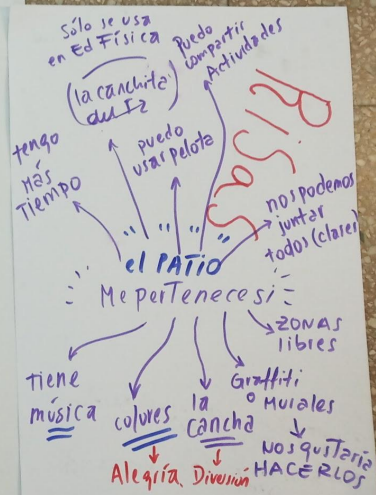 Sólo se usa
en Ed Física
(la canchita
del F2)
puedo
compartir
Actividades
RISAS
tengo
más
Tiempo
puedo
usar pelota
nos podemos
juntar
todos (clases)
el PATIO
Me perTenece si
ZONAS
libres
Tiene
música
colores
Alegría
la
cancha
Diversión
Graffiti
o Murales
NosgusTaría
HACERLOS